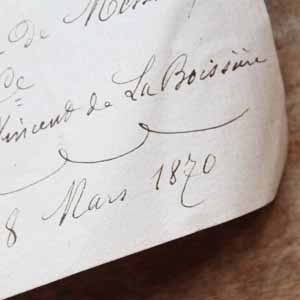 de Mess
De
Vincent de La Boissière
8 Mars 1870